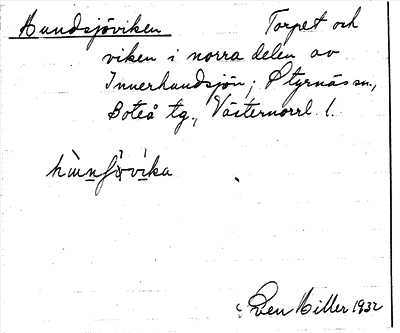 Hundsjöviken Torpet och
viken i norra delen av
Innerhundsjön; Styrnäs sn.,
Boteå tg., Västernorrl. l.
Sven Hiller 1932